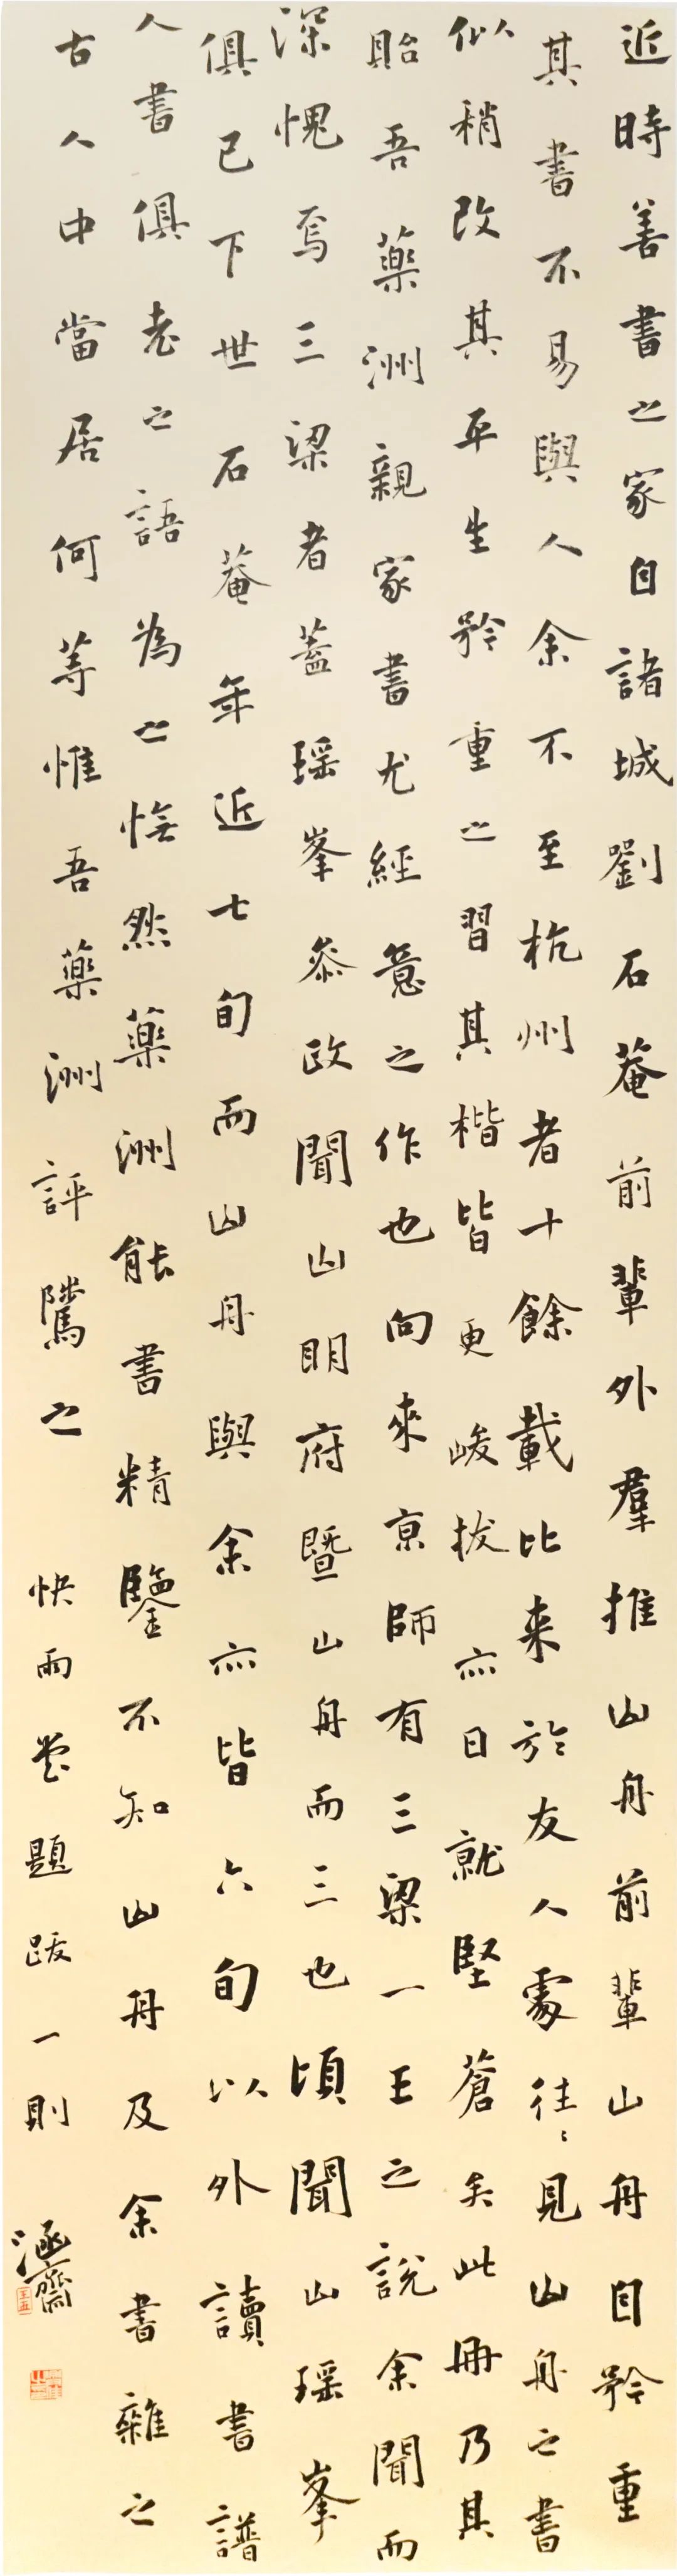 近時善書之家自諸城劉石菴前輩外羣推山舟前輩山舟自矜重
其書不易與人余不至杭州者十餘載比来於友人處往〻見山舟之書
似稍改其平生矜重之習其楷皆更峻拔亦日就堅蒼矣此冊乃其
貽吾藥洲親家書尤經意之作也向來京師有三梁一王之說余聞而
深愧焉三梁者蓋瑶峯叅政聞山明府暨山舟而三也頃聞山瑶峯
俱已下世石菴年近七旬而山舟與余亦皆六旬以外讀書譜
人書俱老之語為之憮然藥洲能書精鑒不知山舟及余書雜之
古人中當居何等惟吾藥洲評騭之
快雨堂題跋一則
涵齋